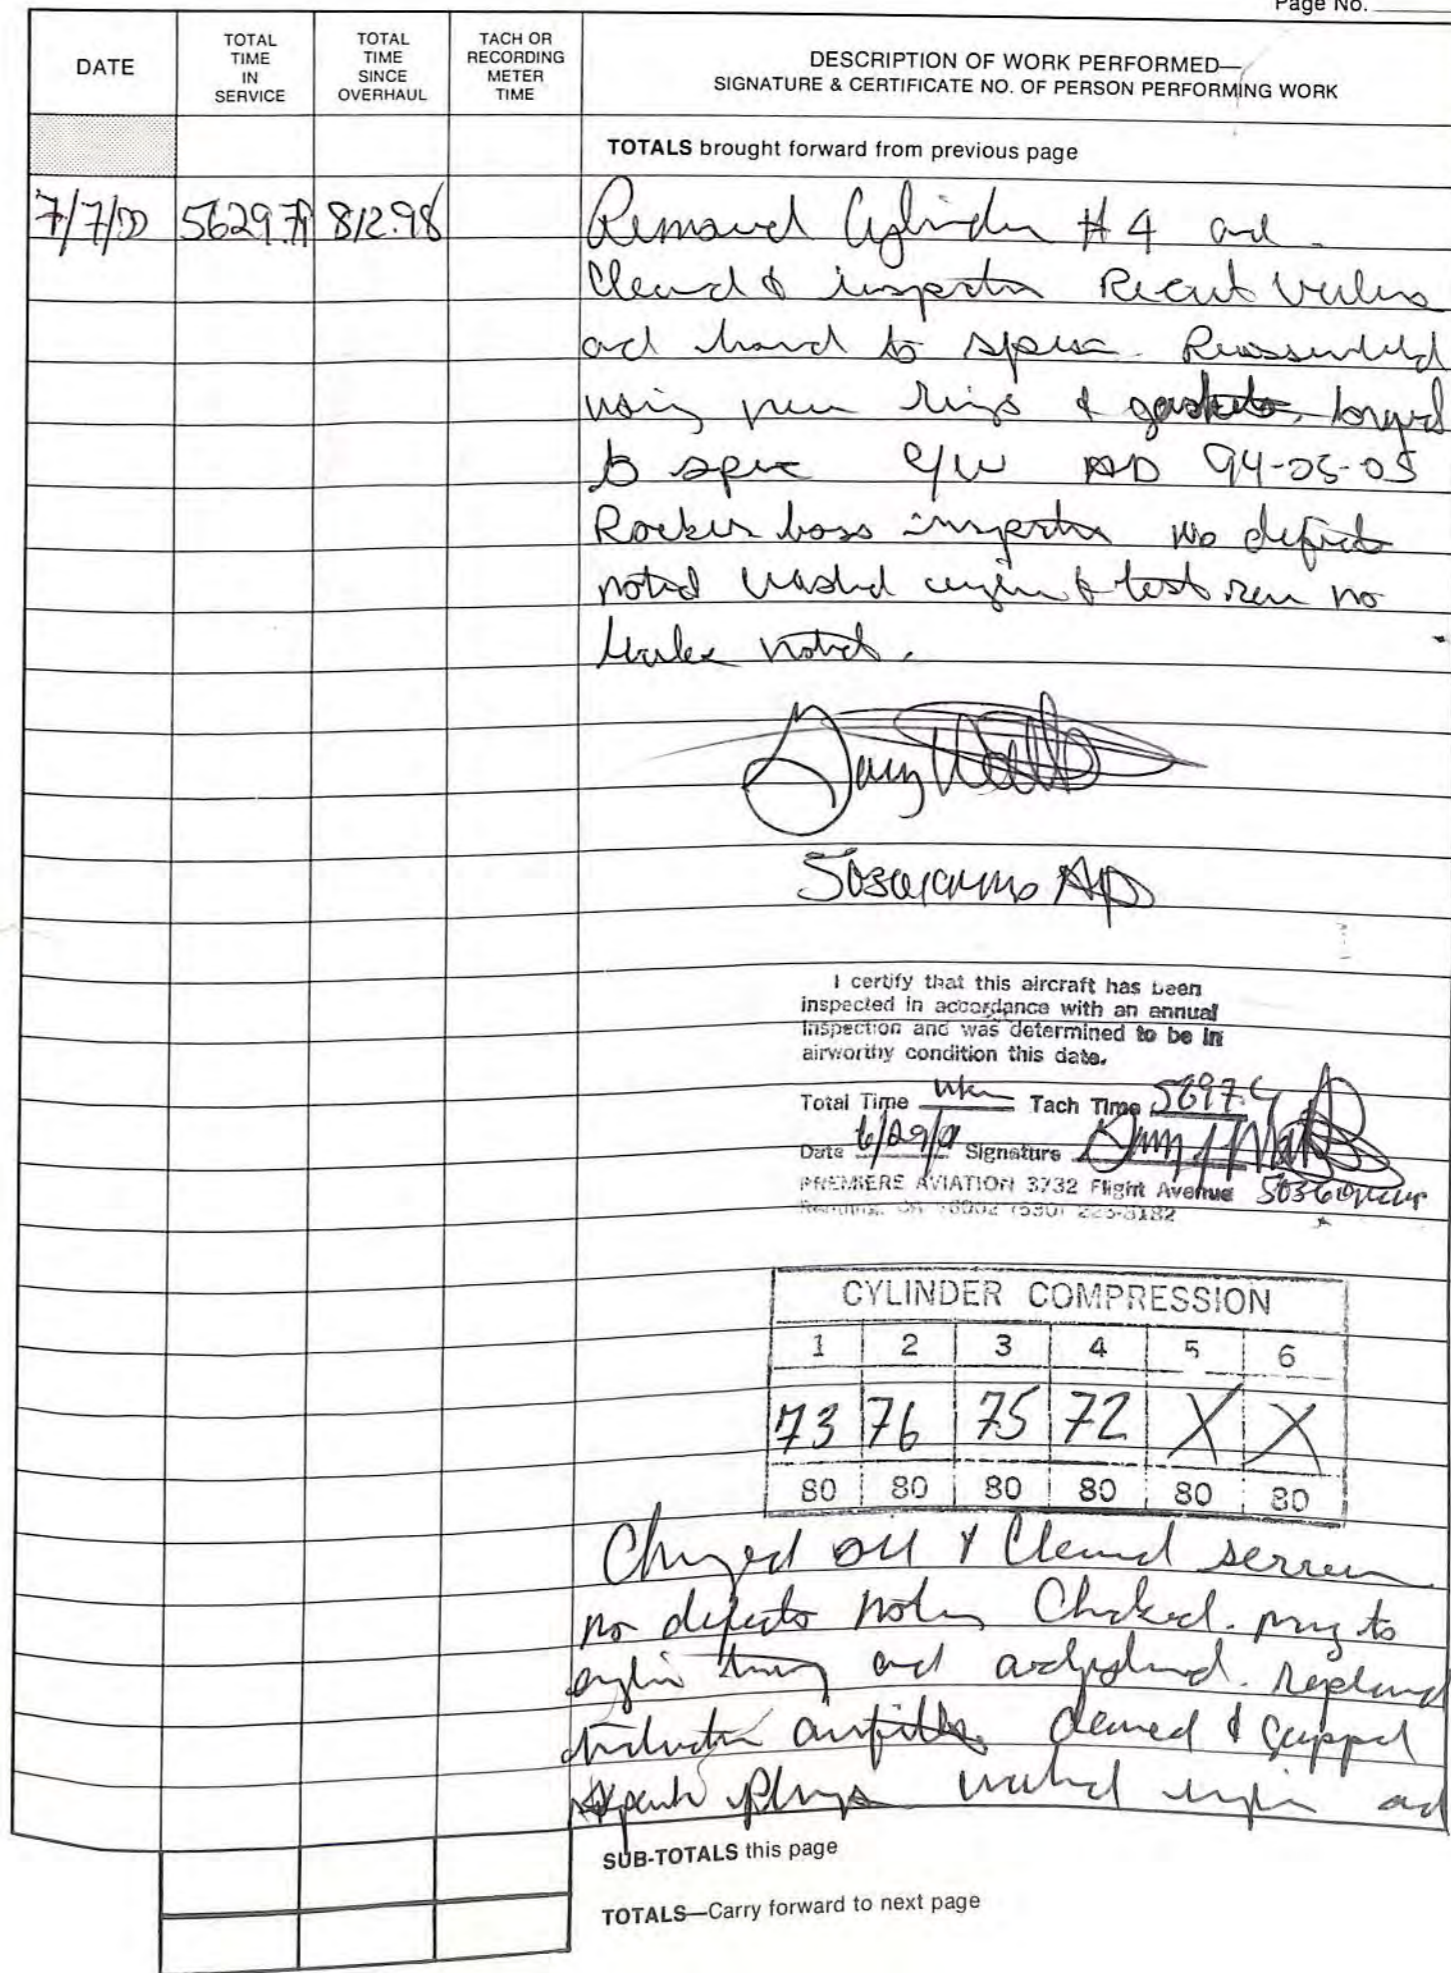 Page No.
DATE
TOTAL TIME IN SERVICE
TOTAL TIME SINCE OVERHAUL
TACH OR RECORDING METER TIME
DESCRIPTION OF WORK PERFORMED—
SIGNATURE & CERTIFICATE NO. OF PERSON PERFORMING WORK
TOTALS brought forward from previous page
7/7/00 812.98 Removed Cylinder #4 and
Cleaned & Valves
and to Reassembled
using new rings & gaskets, torqued
to spec C/W AD 94-05-05
Rocker boss no defects
noted washed engine & test run no
leaks noted.
A&P
I certify that this aircraft has been
inspected in accordance with an annual
inspection and was determined to be in
airworthy condition this date.
Total Time unk Tach Time
Date Signature
PREMIERE AVIATION 3732 Flight Avenue
CYLINDER COMPRESSION
1 2 3 4 5 6
73 76 75 72 X X
80 80 80 80 80 80
Changed oil & Cleaned screen
no defects Checked mag to
engine timing and replaced
induction airfilter cleaned & gapped
spark plugs washed engine and
SUB-TOTALS this page
TOTALS—Carry forward to next page